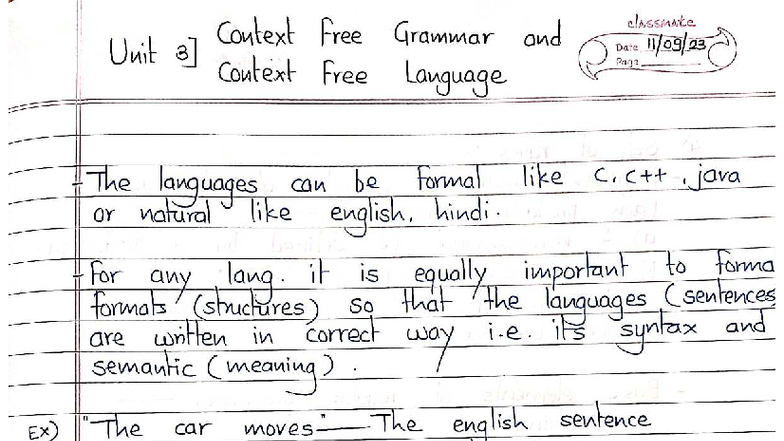 classmate
Date 11/09/23
Page
Unit 3] Context Free Grammar and
Context Free Language
- The languages can be formal like C, C++, java
or natural like english, hindi.
- For any lang. it is equally important to forma
formats (structures) so that the languages (sentences
are written in correct way i.e. its syntax and
semantic (meaning).
Ex) "The car moves" — The english sentence